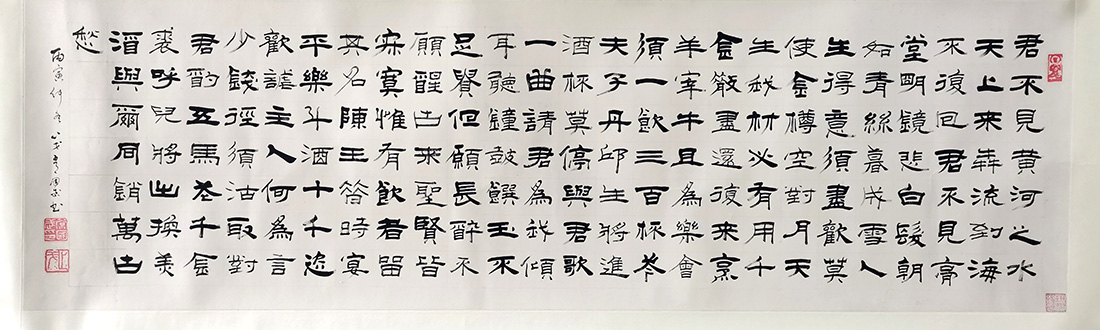 君不見黄河之水
天上來犇流到海
不復回君不見高
堂明鏡悲白髮朝
如青絲暮成雪人
生得意須盡歡莫
使金樽空對月天
生我材必有用千
金散盡還復來烹
羊宰牛且為樂會
須一飲三百杯岑
夫子丹邱生將進
酒杯莫停與君歌
一曲請君為我傾
耳聽鐘鼓饌玉不
足貴但願長醉不
願醒古來聖賢皆
寂寞惟有飲者留
其名陳王昔時宴
平樂斗酒十千恣
歡謔主人何為言
少錢徑須沽取對
君酌五馬花千金
裘呼兒將出換美
酒與爾同銷萬古
愁
丙寅仲冬八十叟書